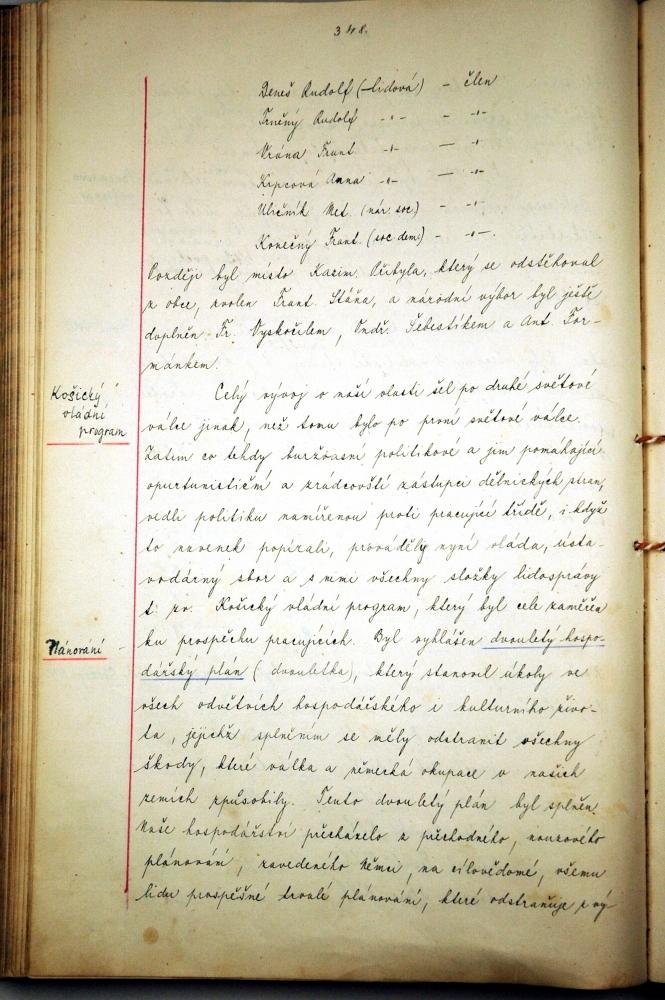 348.
Beneš Rudolf (lidová) - člen
Trněný Rudolf -"- - -"-
Vrána Frant. -"- - -"-
Krpcová Anna -"- - -"-
Uličník Met. (nár. soc.) - -"-
Konečný Frant. (soc. dem.) - -"-.
Později byl místo Kazim. Přibyla, který se odstěhoval
z obce, zvolen Frant. Stáňa, a národní výbor byl ještě
doplněn Fr. Vyskočilem, Ondř. Šebestíkem a Ant. For-
mánkem.
Košický
vládní
program
Celý vývoj v naší vlasti šel po druhé světové
válce jinak, než tomu bylo po první světové válce.
Zatím co tehdy buržoasní politikové a jim pomáhající
oportunističní a zradcovští zástupci dělnických stran,
vedli politiku namířenou proti pracující třídě, i když
to navenek popírali, prováděly nyní vláda, ústa-
vodárný sbor a s nimi všechny složky lidosprávy
t. zv. Košický vládní program, který byl cele zaměřen
ku prospěchu pracujících. Byl vyhlášen dvouletý hospo-
Plánování
dářský plán (dvouletka), který stanovil úkoly ve
všech odvětvích hospodářského i kulturního živo-
ta, jejichž splněním se měly odstranit všechny
škody, které válka a německá okupace v našich
zemích způsobily. Tento dvouletý plán byl splněn.
Naše hospodářství přecházelo z přechodného, nouzového
plánování, zavedeného Němci, na cílevědomé, všemu
lidu prospěšné trvalé plánování, které odstraňuje z vý-